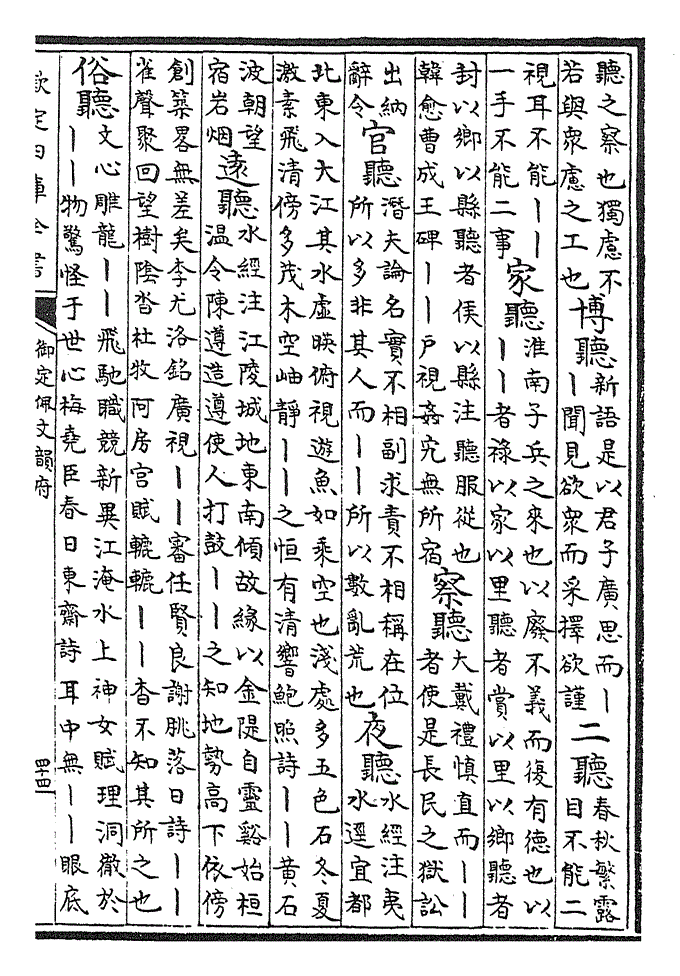 聽之察也獨慮不
若與衆慮之工也
博聽
新語是以君子廣思而｜
｜聞見欲衆而采擇欲謹
二聽
春秋繁露
目不能二
視耳不能｜｜
一手不能二事
家聽
淮南子兵之來也以廢不義而復有德也以
｜｜者祿以家以里聽者賞以里以鄉聽者
封以鄉以縣聽者侯以縣注聽服從也
韓愈曹成王碑｜｜戶視姦宄無所宿
察聽
大戴禮慎直而｜｜
者使是長民之獄訟
出納
辭令
官聽
潛夫論名實不相副求責不相稱在位
所以多非其人而｜｜所以數亂荒也
夜聽
水經注夷
水逕宜都
北東入大江其水虛映俯視遊魚如乘空也淺處多五色石冬夏
激素飛清傍多茂木空岫靜｜｜之恒有清響鮑照詩｜｜黃石
波朝望
宿岩烟
遠聽
水經注江陵城地東南傾故緣以金隄自靈谿始桓
溫令陳遵造遵使人打鼓｜｜之知地勢高下依傍
創築畧無差矣李尤洛銘廣視｜｜審任賢良謝朓落日詩｜｜
雀聲聚回望樹陰沓杜牧阿房宮賦轆轆｜｜杳不知其所之也
俗聽
文心雕龍｜｜飛馳職競新異江淹水上神女賦理洞徹於
｜｜物驚怪于世心梅堯臣春日東齋詩耳中無｜｜眼底
欽定四庫全書
御定佩文韻府
四十四